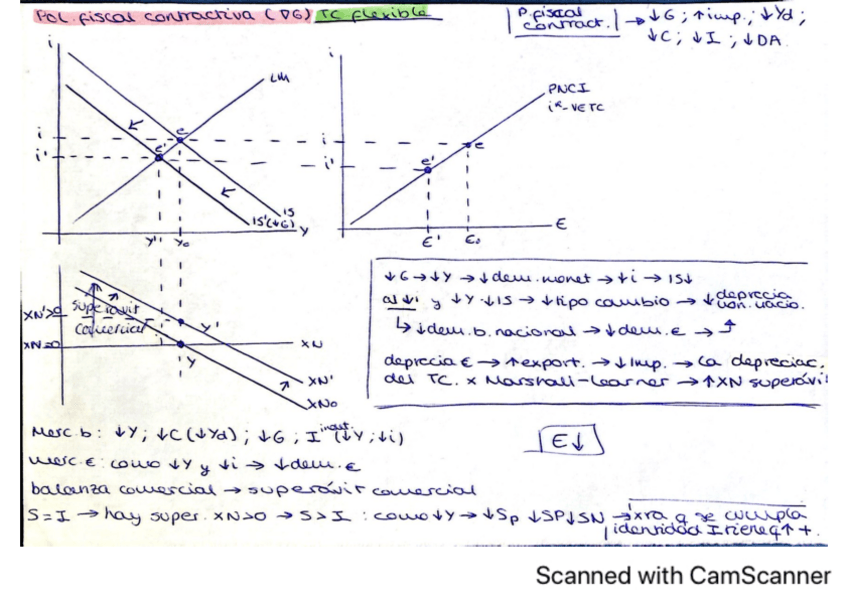 POL. fiscal contractiva (↓G) TC flexible
P. fiscal contract. → ↓G; ↑imp.; ↓Yd;
↓C; ↓I; ↓DA.
i
LM
i
i'
e
e'
IS
IS'(↓G)
Y
Y' Y₀
i
PNCI
i*-VETC
i
i'
e
e'
E
E' E₀
XN'>0
XN=0
Superávit
comercial
Y'
Y
XN
XN'
XN₀
↓G → ↓Y → ↓dem. monet → ↓i → IS↓
al ↓i y ↓Y ↓IS → ↓tipo cambio → ↓deprecia mon. nacio.
↳ ↓dem. b. nacional → ↓dem. € →
deprecia € → ↑export. → ↓imp. → La depreciac.
del TC. x Marshall-Learner → ↑XN superávi
Merc. b: ↓Y; ↓C (↓Yd); ↓G; I (↓Y; ↓i)
E↓
merc. €: como ↓Y y ↓i → ↓dem. €
balanza comercial → superávit comercial
S=I → hay super. XN>0 → S>I: como ↓Y → ↓Sp ↓SP ↓SN → xra q se cumpla
identidad I tiene q ↑ +.
Scanned with CamScanner